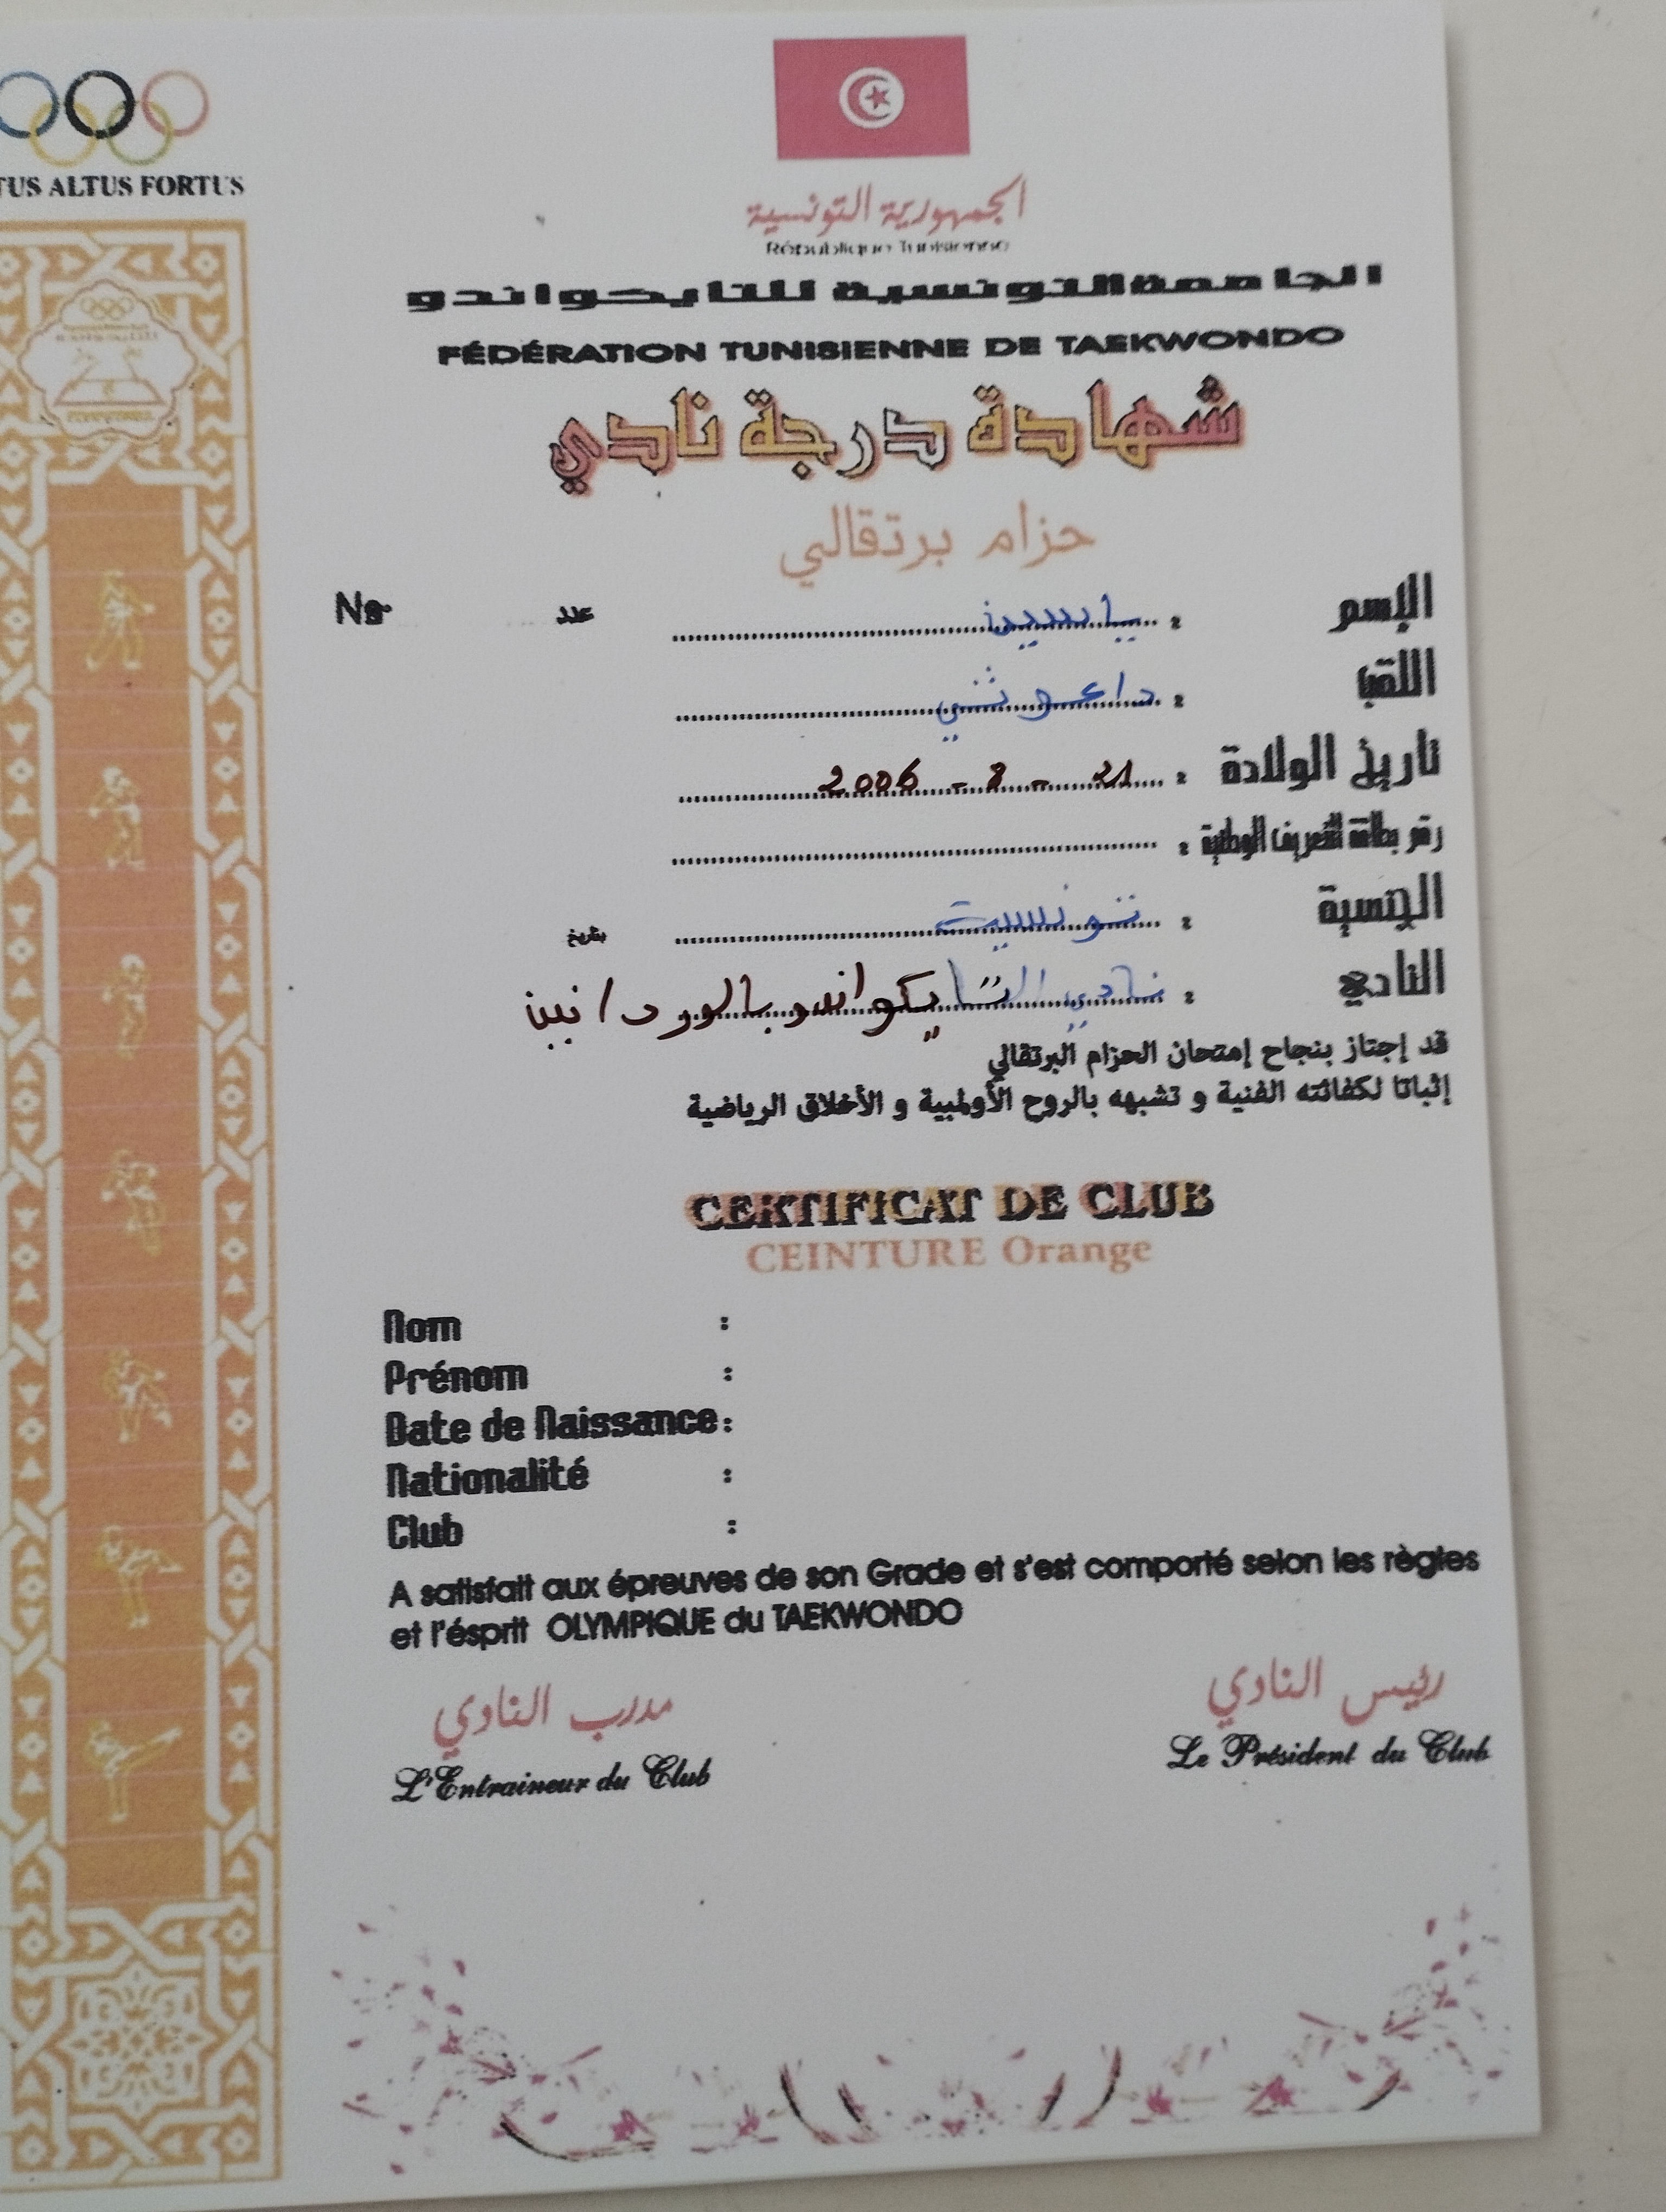 TUS ALTUS FORTUS
الجمهورية التونسية
République Tunisienne
الجامعة التونسية للتايكواندو
FÉDÉRATION TUNISIENNE DE TAEKWONDO
شهادة درجة نادي
حزام برتقالي
الإسم : ياسين عدد No
اللقب :
تاريخ الولادة : 21 - 8 - 2006
رقم بطاقة التعريف الوطنية :
الجنسية : تونسية بتاريخ
النادي : نادي التايكواندو بالوردانين
قد إجتاز بنجاح إمتحان الحزام البرتقالي
إثباتا لكفائته الفنية و تشبهه بالروح الأولمبية و الأخلاق الرياضية
CERTIFICAT DE CLUB
CEINTURE Orange
Nom :
Prénom :
Date de Naissance :
Nationalité :
Club :
A satisfait aux épreuves de son Grade et s'est comporté selon les règles
et l'ésprit OLYMPIQUE du TAEKWONDO
رئيس النادي مدرب النادي
L'Entraineur du Club Le Président du Club